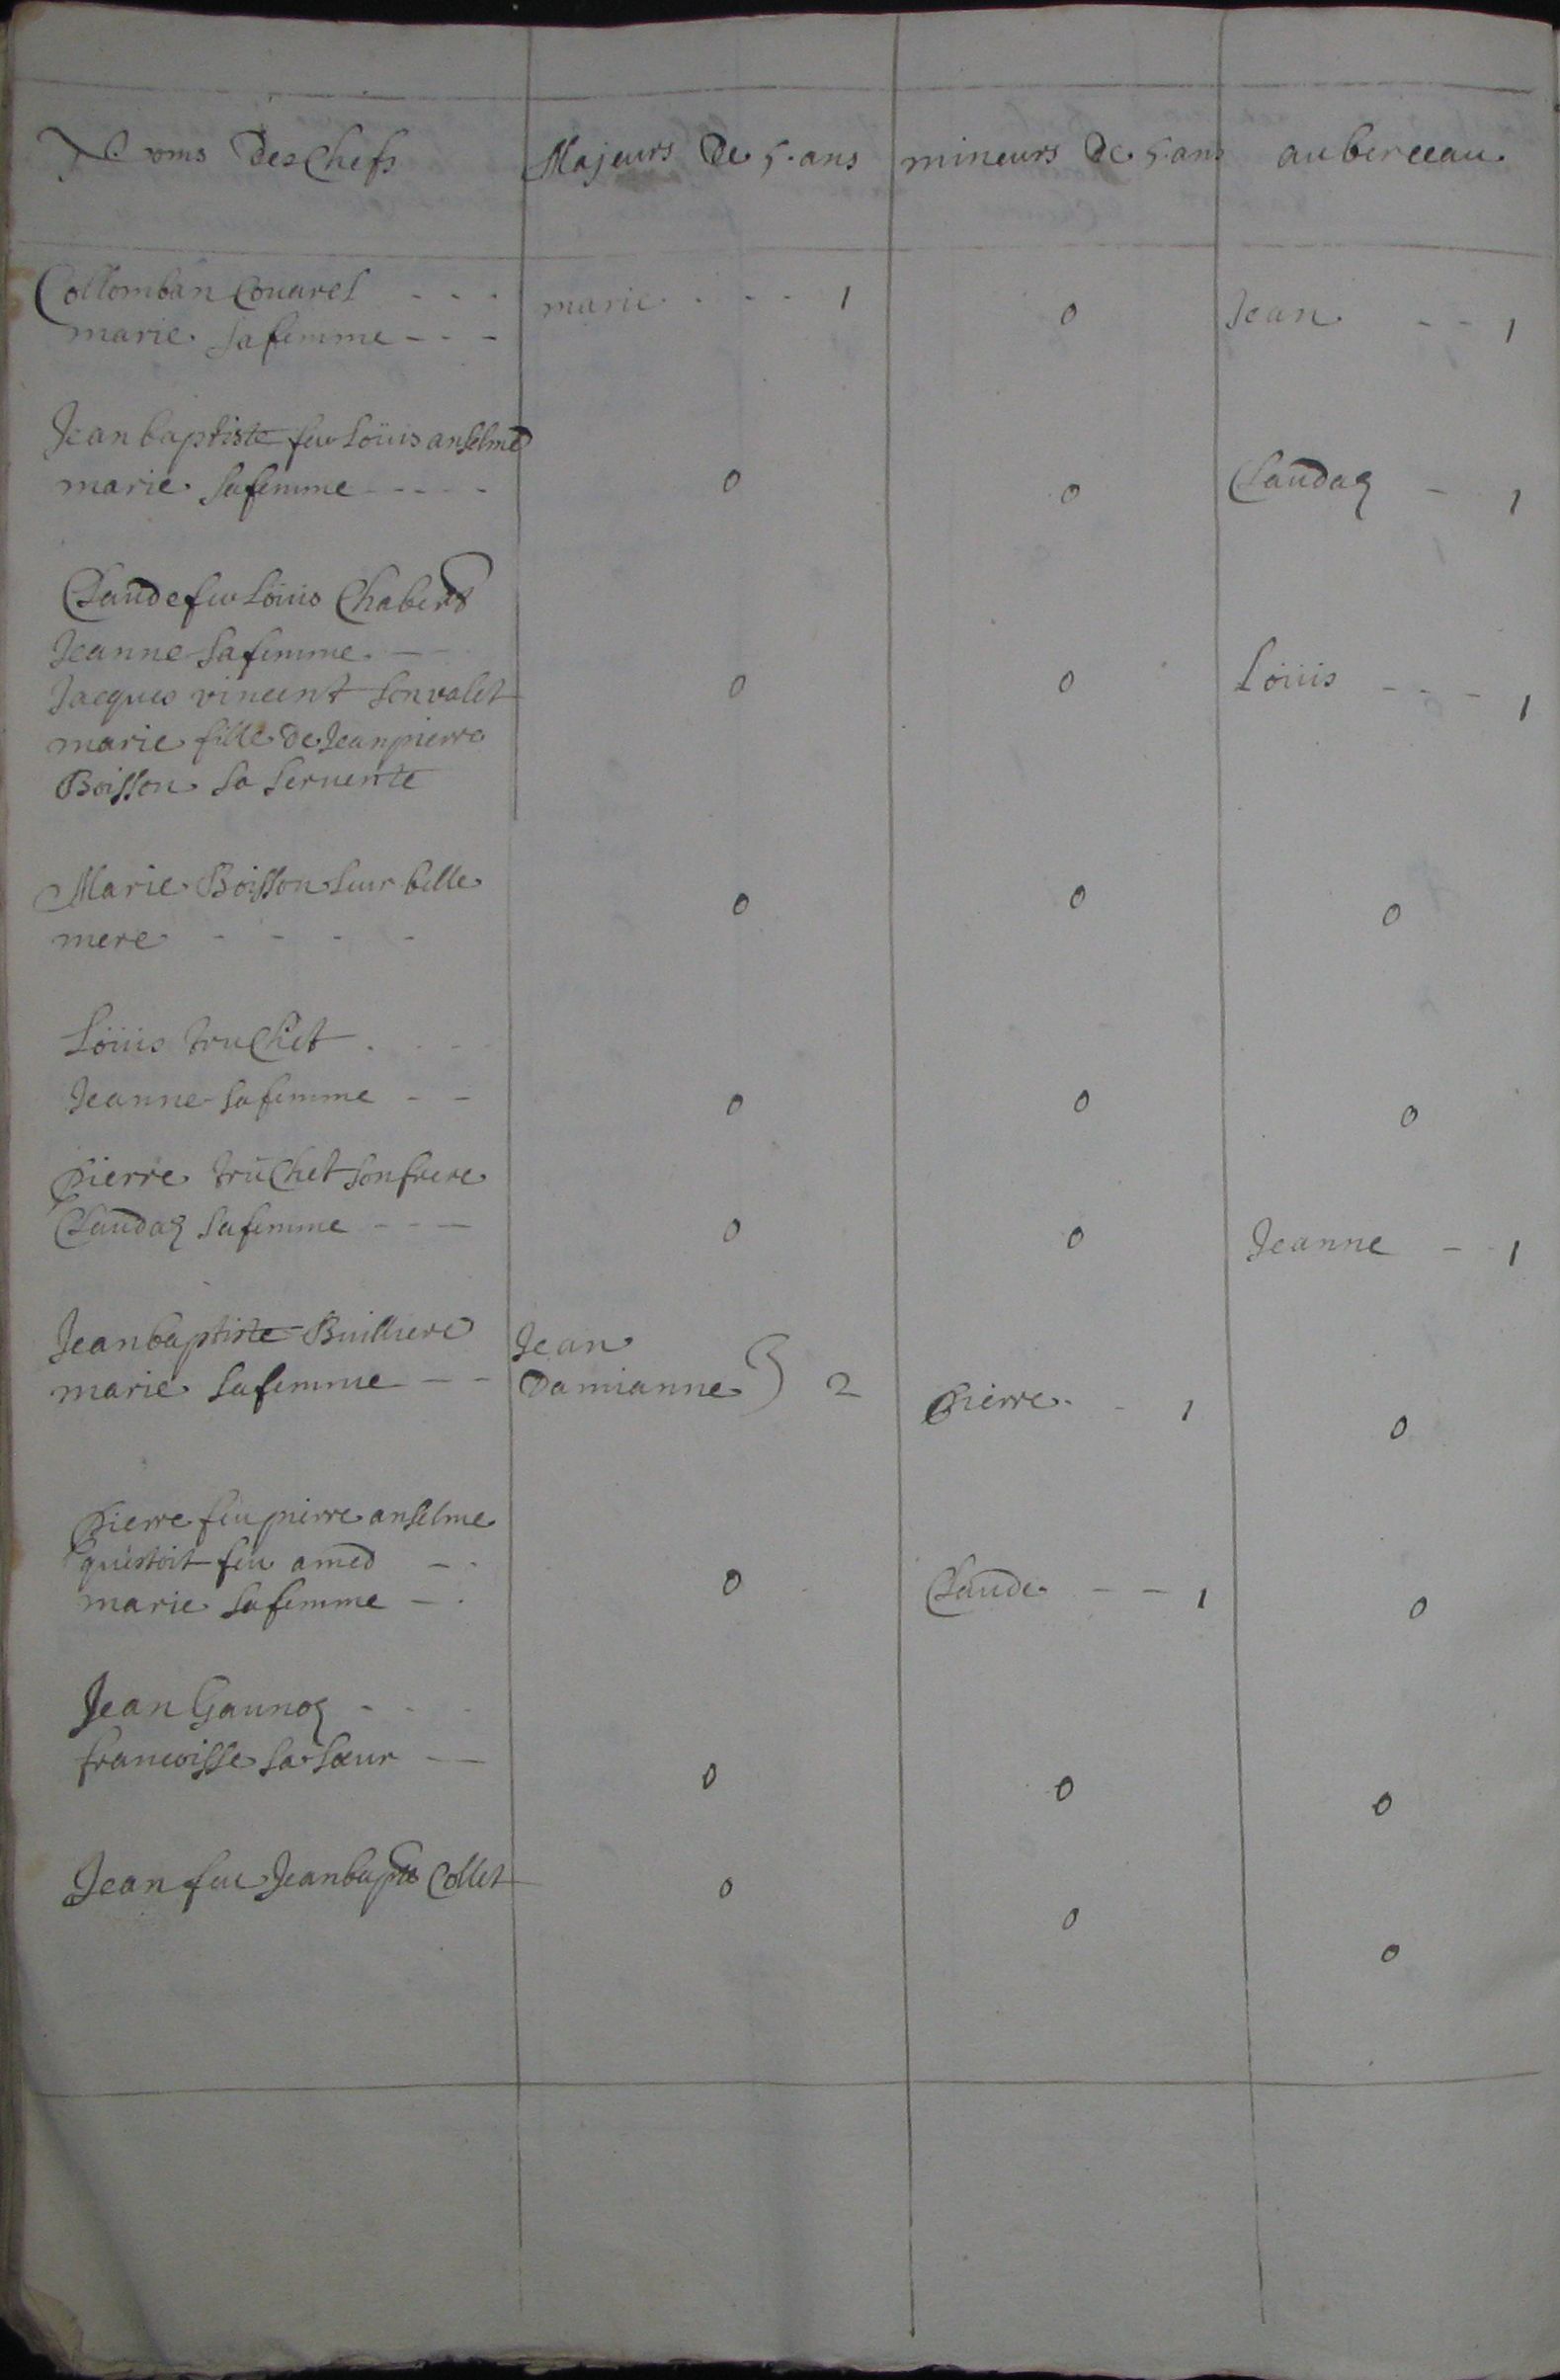 Noms Des Chefs	Majeurs De 5. ans	mineurs De 5. ans	au berceau
Collomban Couarel - - -	marie - - - 1	0	Jean - - 1
marie sa femme - - -
Jean baptiste feu Loüis anselme
marie sa femme - - - -	0	0	Claudaz - 1
Claude feu Loüis Chabert
Jeanne sa femme -
Jacques vincent son valet	0	0	Loüis - - - 1
marie fille de Jean pierre
Boisson sa servente
Marie Boisson leur belle	0	0	0
mere - - - -
Loüis truchet - - -
Jeanne sa femme - -	0	0	0
pierre trüchet son frere
Claudaz sa femme - - -	0	0	Jeanne - - 1
Jean baptiste Builliere	Jean
marie sa femme - -	Damianne } 2	pierre - 1	0
pierre feu pierre anselme
qu'estoit feu amed - -
marie sa femme - -	0	Claude - - 1	0
Jean Gaunoz - - -
francoisse sa sœur - -	0	0	0
Jean feu Jean bapte Collet	0	0	0